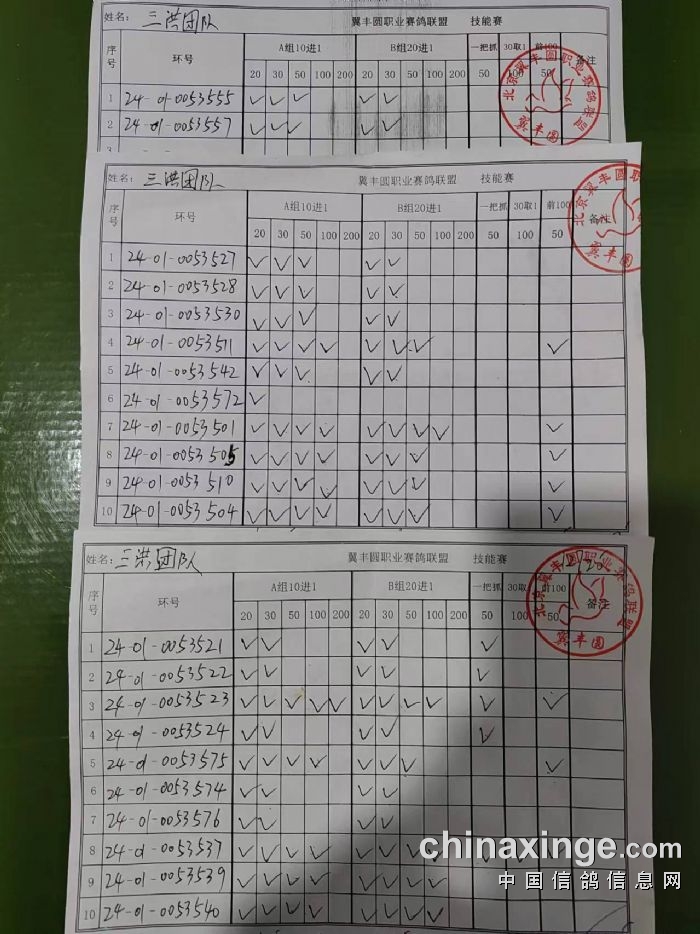 姓名: 三洪团队 翼丰圆职业赛鸽联盟 技能赛
序号 环号 A组10进1 B组20进1 一把抓 30取1 前100 备注
20 30 50 100 200 20 30 50 100 200 50 100 50
1 24-01-0053555 ✓ ✓ ✓ ✓ ✓
2 24-01-0053557 ✓ ✓ ✓ ✓ ✓
北京翼丰圆职业赛鸽联盟
翼丰圆
姓名: 三洪团队 翼丰圆职业赛鸽联盟 技能赛
序号 环号 A组10进1 B组20进1 一把抓 30取1 前100 备注
20 30 50 100 200 20 30 50 100 200 50 100 50
1 24-01-0053527 ✓ ✓ ✓ ✓ ✓
2 24-01-0053528 ✓ ✓ ✓ ✓ ✓
3 24-01-0053530 ✓ ✓ ✓ ✓ ✓
4 24-01-0053511 ✓ ✓ ✓ ✓ ✓ ✓ ✓ ✓
5 24-01-0053542 ✓ ✓ ✓ ✓ ✓
6 24-01-0053572 ✓
7 24-01-0053501 ✓ ✓ ✓ ✓ ✓ ✓ ✓ ✓ ✓
8 24-01-0053505 ✓ ✓ ✓ ✓ ✓ ✓ ✓ ✓
9 24-01-0053510 ✓ ✓ ✓ ✓ ✓ ✓ ✓ ✓
10 24-01-0053504 ✓ ✓ ✓ ✓ ✓ ✓ ✓ ✓
姓名: 三洪团队 翼丰圆职业赛鸽联盟 技能赛
序号 环号 A组10进1 B组20进1 一把抓 30取1 前100 备注
20 30 50 100 200 20 30 50 100 200 50 100 50
北京翼丰圆职业赛鸽联盟
翼丰圆
1 24-01-0053521 ✓ ✓ ✓ ✓ ✓
2 24-01-0053522 ✓ ✓ ✓ ✓ ✓
3 24-01-0053523 ✓ ✓ ✓ ✓ ✓ ✓ ✓ ✓ ✓ ✓ ✓
4 24-01-0053524 ✓ ✓ ✓ ✓ ✓
5 24-01-0053575 ✓ ✓ ✓ ✓ ✓ ✓ ✓ ✓
6 24-01-0053574 ✓ ✓ ✓ ✓
7 24-01-0053576 ✓ ✓ ✓ ✓
8 24-01-0053537 ✓ ✓ ✓ ✓ ✓ ✓ ✓ ✓
9 24-01-0053539 ✓ ✓ ✓ ✓ ✓ ✓ ✓ ✓
10 24-01-0053540 ✓ ✓ ✓ ✓ ✓ ✓ ✓ ✓
chinaxinge.com
中国信鸽信息网